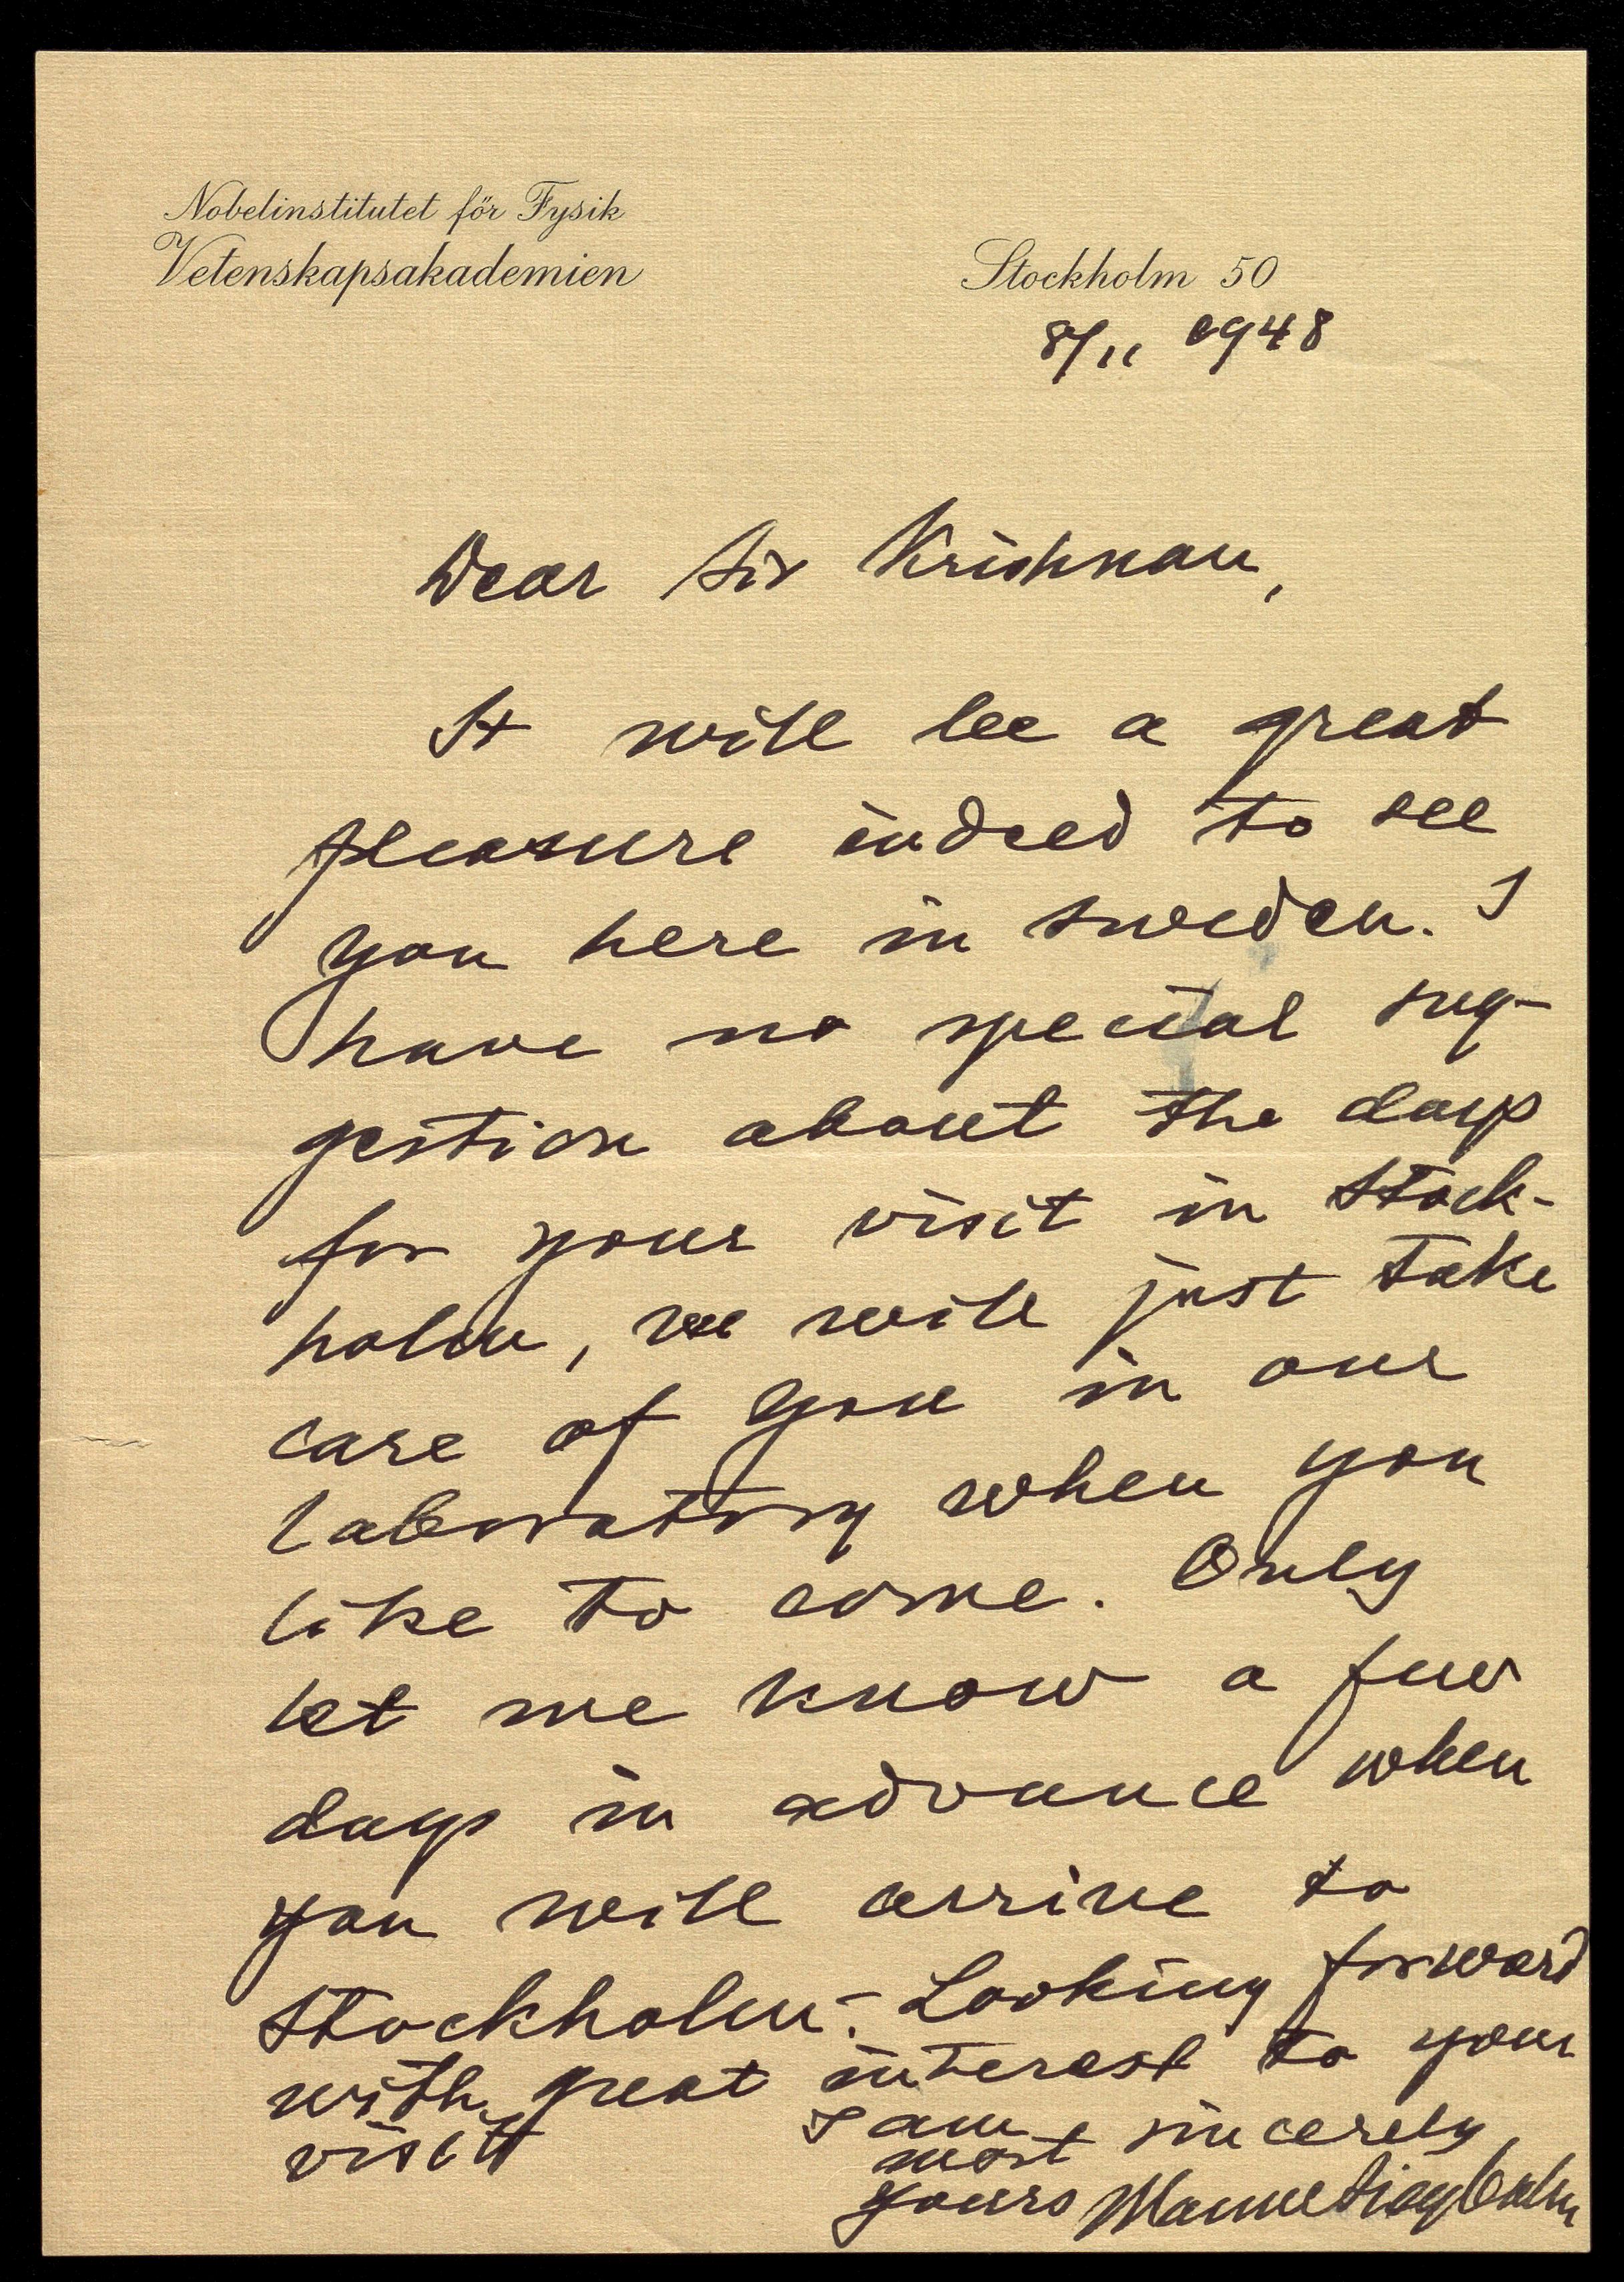 Nobelinstitutet för Fysik
Vetenskapsakademien
Stockholm 50
8/11 1948
Dear Sir Krishnan,
It will be a great
pleasure indeed to see
you here in Sweden. I
have no special sug-
gestion about the days
for your visit in Stock-
holm, we will just take
care of you in our
laboratory when you
like to come. Only
let me know a few
days in advance when
you will arrive to
Stockholm.- Looking forward
with great interest to your
visit
I am
most sincerely
yours Manne Siegbahn